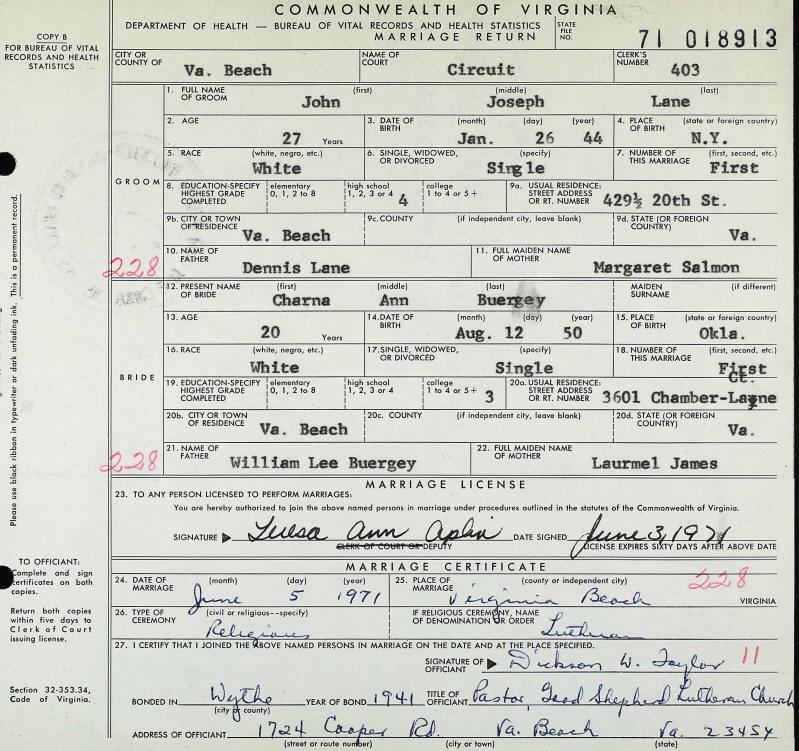 COMMONWEALTH OF VIRGINIA
DEPARTMENT OF HEALTH — BUREAU OF VITAL RECORDS AND HEALTH STATISTICS
MARRIAGE RETURN
STATE FILE NO. 71 018913
COPY B
FOR BUREAU OF VITAL RECORDS AND HEALTH STATISTICS
CITY OR COUNTY OF Va. Beach NAME OF COURT Circuit CLERK'S NUMBER 403
GROOM
1. FULL NAME OF GROOM (first) John (middle) Joseph (last) Lane
2. AGE 27 Years 3. DATE OF BIRTH (month) Jan. (day) 26 (year) 44 4. PLACE OF BIRTH (state or foreign country) N.Y.
5. RACE (white, negro, etc.) White 6. SINGLE, WIDOWED, OR DIVORCED (specify) Single 7. NUMBER OF THIS MARRIAGE (first, second, etc.) First
8. EDUCATION-SPECIFY HIGHEST GRADE COMPLETED elementary 0, 1, 2 to 8 high school 1, 2, 3 or 4 4 college 1 to 4 or 5 + 9a. USUAL RESIDENCE: STREET ADDRESS OR RT. NUMBER 429½ 20th St.
9b. CITY OR TOWN OF RESIDENCE Va. Beach 9c. COUNTY (if independent city, leave blank) 9d. STATE (OR FOREIGN COUNTRY) Va.
228
10. NAME OF FATHER Dennis Lane 11. FULL MAIDEN NAME OF MOTHER Margaret Salmon
BRIDE
12. PRESENT NAME OF BRIDE (first) Charna (middle) Ann (last) Buergey MAIDEN SURNAME (if different)
13. AGE 20 Years 14. DATE OF BIRTH (month) Aug. (day) 12 (year) 50 15. PLACE OF BIRTH (state or foreign country) Okla.
16. RACE (white, negro, etc.) White 17. SINGLE, WIDOWED, OR DIVORCED (specify) Single 18. NUMBER OF THIS MARRIAGE (first, second, etc.) First
19. EDUCATION-SPECIFY HIGHEST GRADE COMPLETED elementary 0, 1, 2 to 8 high school 1, 2, 3 or 4 college 1 to 4 or 5+ 3 20a. USUAL RESIDENCE: STREET ADDRESS OR RT. NUMBER 3601 Chamber-Layne Ct.
20b. CITY OR TOWN OF RESIDENCE Va. Beach 20c. COUNTY (if independent city, leave blank) 20d. STATE (OR FOREIGN COUNTRY) Va.
228
21. NAME OF FATHER William Lee Buergey 22. FULL MAIDEN NAME OF MOTHER Laurmel James
MARRIAGE LICENSE
23. TO ANY PERSON LICENSED TO PERFORM MARRIAGES:
You are hereby authorized to join the above named persons in marriage under procedures outlined in the statutes of the Commonwealth of Virginia.
SIGNATURE Teresa Ann Aplin DATE SIGNED June 3, 1971
CLERK OF COURT OR DEPUTY LICENSE EXPIRES SIXTY DAYS AFTER ABOVE DATE
MARRIAGE CERTIFICATE
24. DATE OF MARRIAGE (month) June (day) 5 (year) 1971 25. PLACE OF MARRIAGE (county or independent city) Virginia Beach VIRGINIA
228
26. TYPE OF CEREMONY (civil or religious--specify) Religious IF RELIGIOUS CEREMONY, NAME OF DENOMINATION OR ORDER Lutheran
27. I CERTIFY THAT I JOINED THE ABOVE NAMED PERSONS IN MARRIAGE ON THE DATE AND AT THE PLACE SPECIFIED.
SIGNATURE OF OFFICIANT Dickson W. Taylor 11
BONDED IN Wythe (city or county) YEAR OF BOND 1941 TITLE OF OFFICIANT Pastor, Good Shepherd Lutheran Church
ADDRESS OF OFFICIANT 1724 Cooper Rd. Va. Beach Va. 23454
(street or route number) (city or town) (state)
Please use black ribbon in typewriter or dark unfading ink. This is a permanent record.
TO OFFICIANT:
Complete and sign certificates on both copies.
Return both copies within five days to Clerk of Court issuing license.
Section 32-353.34, Code of Virginia.